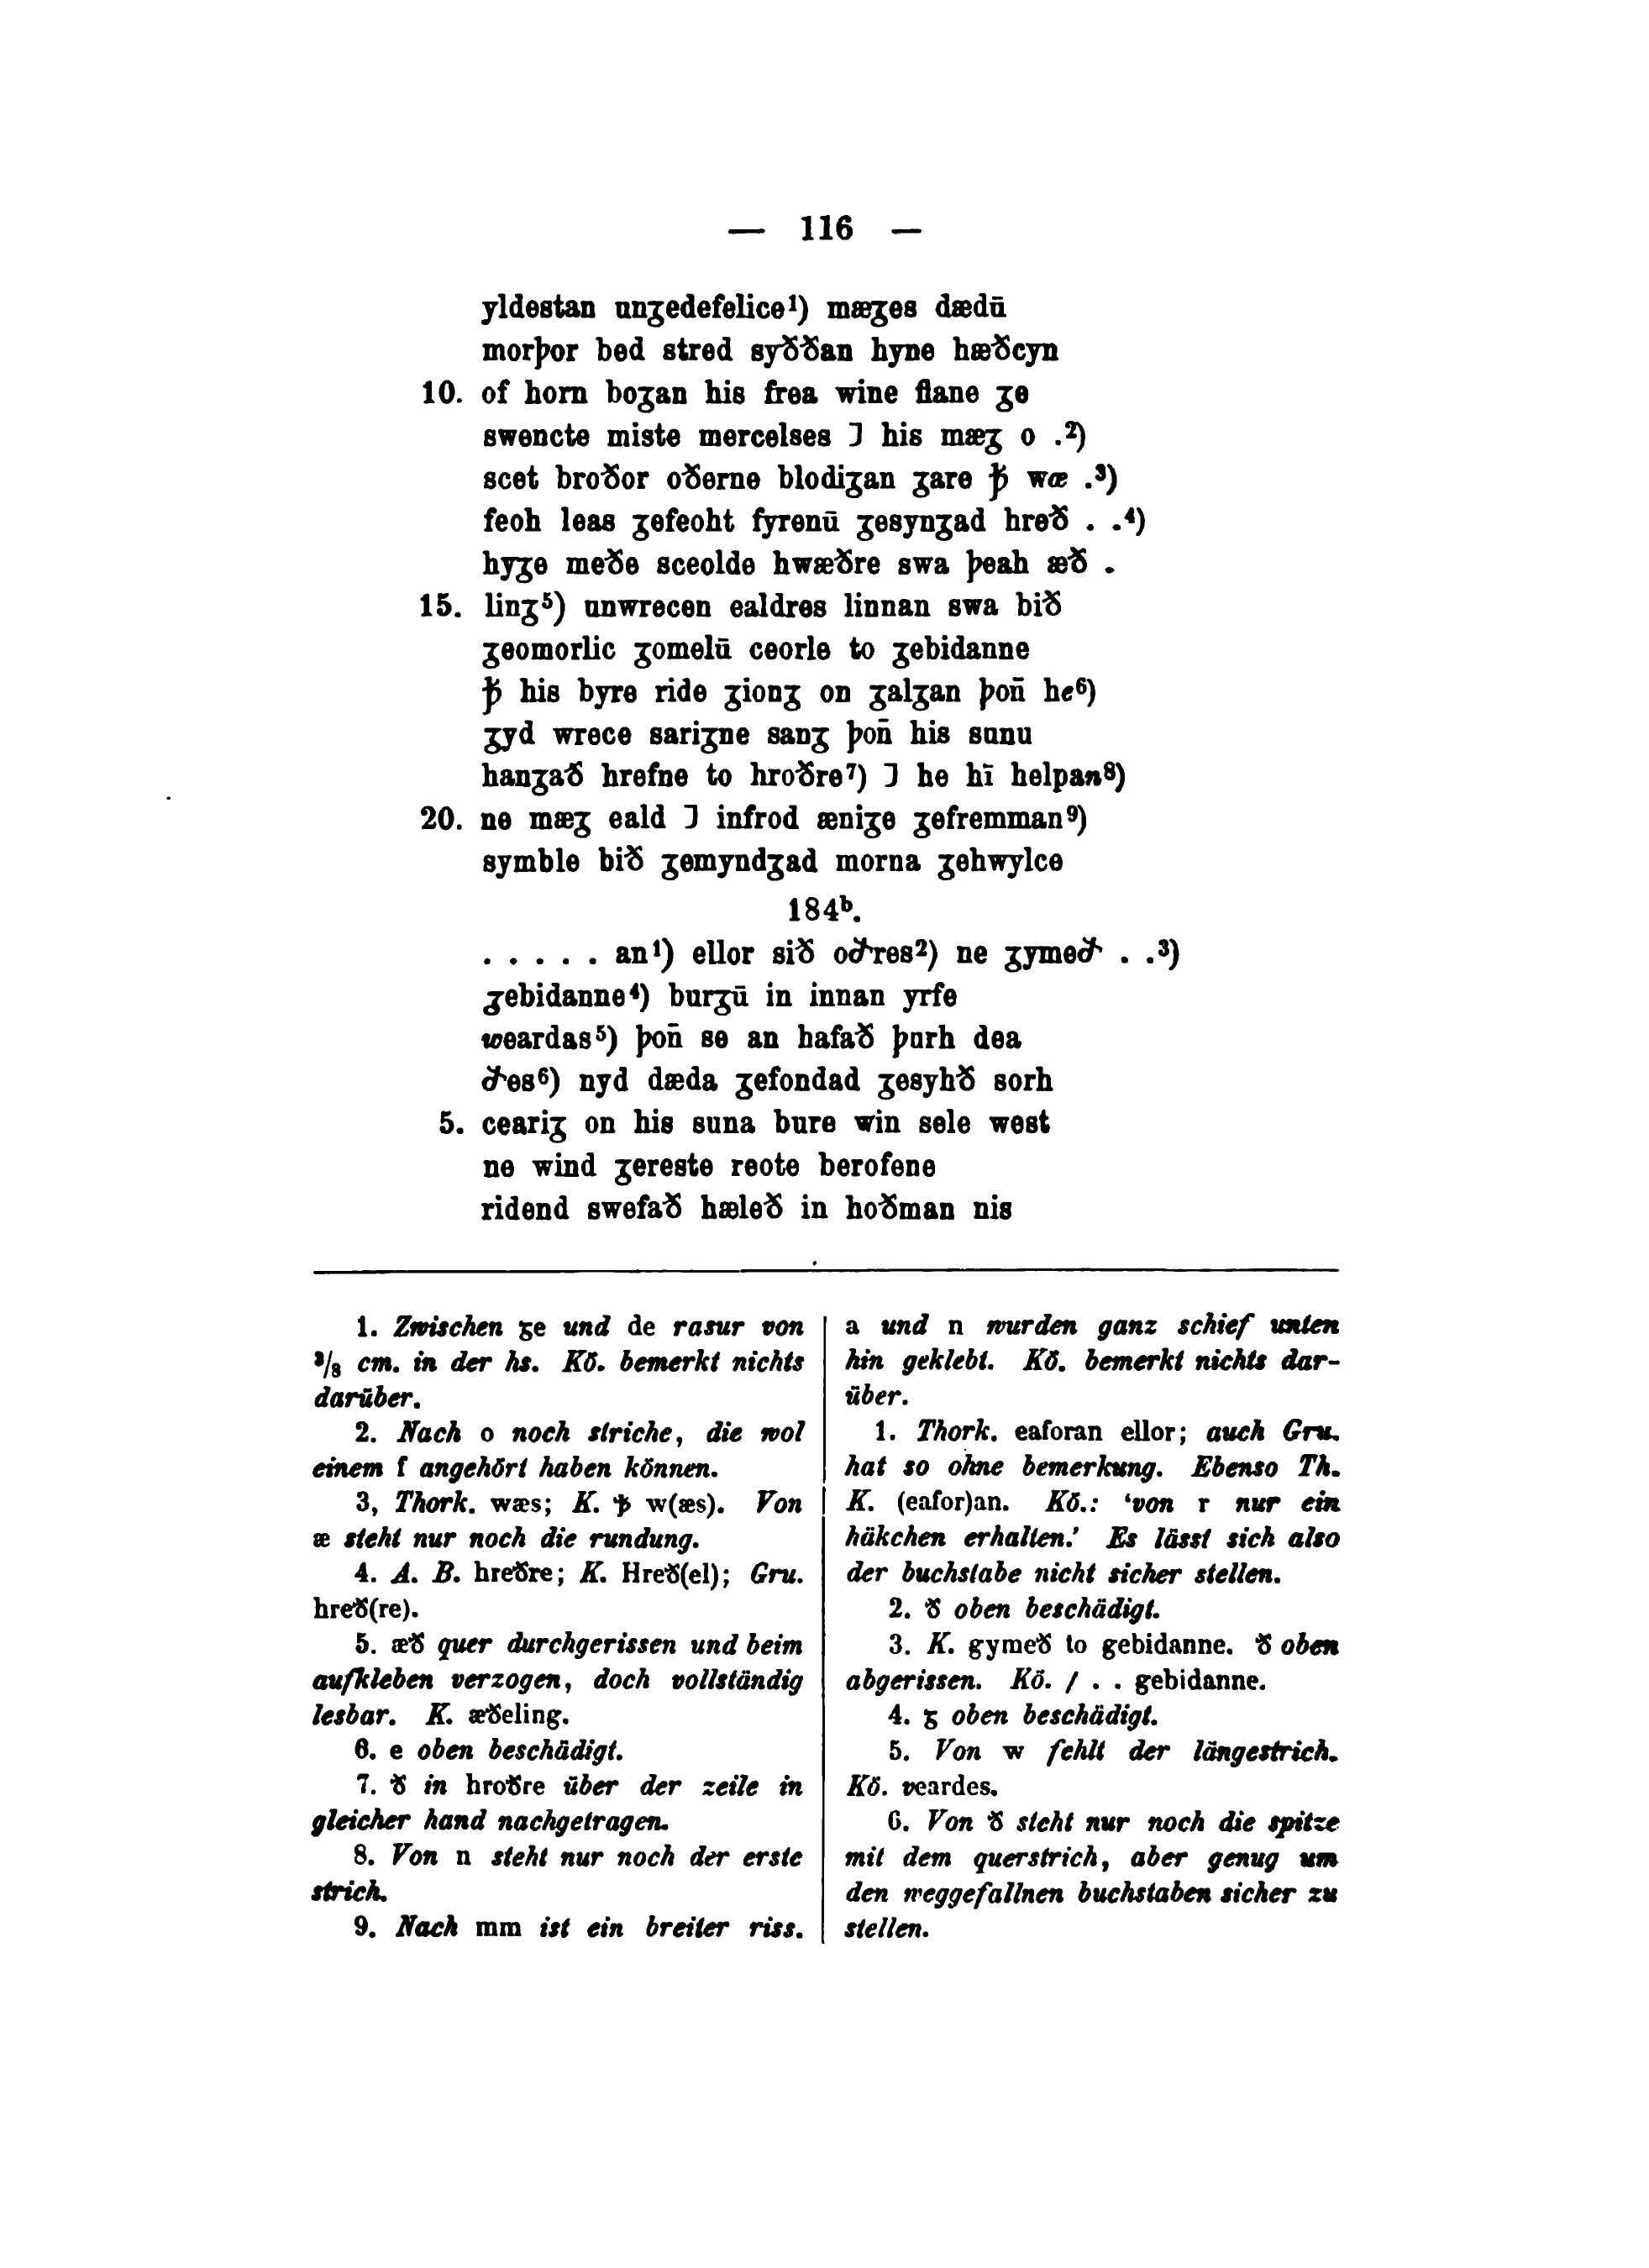 — 116 —
yldestan unȝedefelice¹) mæȝes dædū
morþor bed stred syððan hyne hæðcyn
10. of horn boȝan his frea wine flane ȝe
swencte miste mercelses ⁊ his mæȝ o .²)
scet broðor oðerne blodiȝan ȝare ꝥ wæ .³)
feoh leas ȝefeoht fyrenū ȝesynȝad hreð . .⁴)
hyȝe meðe sceolde hwæðre swa þeah æð .
15. linȝ⁵) unwrecen ealdres linnan swa bið
ȝeomorlic ȝomelū ceorle to ȝebidanne
ꝥ his byre ride ȝionȝ on ȝalȝan þon̄ he⁶)
ȝyd wrece sariȝne sanȝ þon̄ his sunu
hanȝað hrefne to hroðre⁷) ⁊ he hī helpan⁸)
20. ne mæȝ eald ⁊ infrod æniȝe ȝefremman⁹)
symble bið ȝemyndȝad morna ȝehwylce
184ᵇ.
. . . . . an¹) ellor sið oðres²) ne ȝymeð . .³)
ȝebidanne⁴) burȝū in innan yrfe
weardas⁵) þon̄ se an hafað þurh dea
ðes⁶) nyd dæda ȝefondad ȝesyhð sorh
5. ceariȝ on his suna bure win sele west
ne wind ȝereste reote berofene
ridend swefað hæleð in hoðman nis
1. Zwischen ȝe und de rasur von
³/₈ cm. in der hs. Kö. bemerkt nichts
darüber.
2. Nach o noch striche, die wol
einem f angehört haben können.
3, Thork. wæs; K. ꝥ w(æs). Von
æ steht nur noch die rundung.
4. A. B. hreðre; K. Hreð(el); Gru.
hreð(re).
5. æð quer durchgerissen und beim
aufkleben verzogen, doch vollständig
lesbar. K. æðeling.
6. e oben beschädigt.
7. ð in hroðre über der zeile in
gleicher hand nachgetragen.
8. Von n steht nur noch der erste
strich.
9. Nach mm ist ein breiter riss.
a und n wurden ganz schief unten
hin geklebt. Kö. bemerkt nichts dar-
über.
1. Thork. eaforan ellor; auch Gru.
hat so ohne bemerkung. Ebenso Th.
K. (eafor)an. Kö.: ‘von r nur ein
häkchen erhalten.’ Es lässt sich also
der buchstabe nicht sicher stellen.
2. ð oben beschädigt.
3. K. gymeð to gebidanne. ð oben
abgerissen. Kö. / . . gebidanne.
4. ȝ oben beschädigt.
5. Von w fehlt der längestrich.
Kö. veardes.
6. Von ð steht nur noch die spitze
mit dem querstrich, aber genug um
den weggefallnen buchstaben sicher zu
stellen.